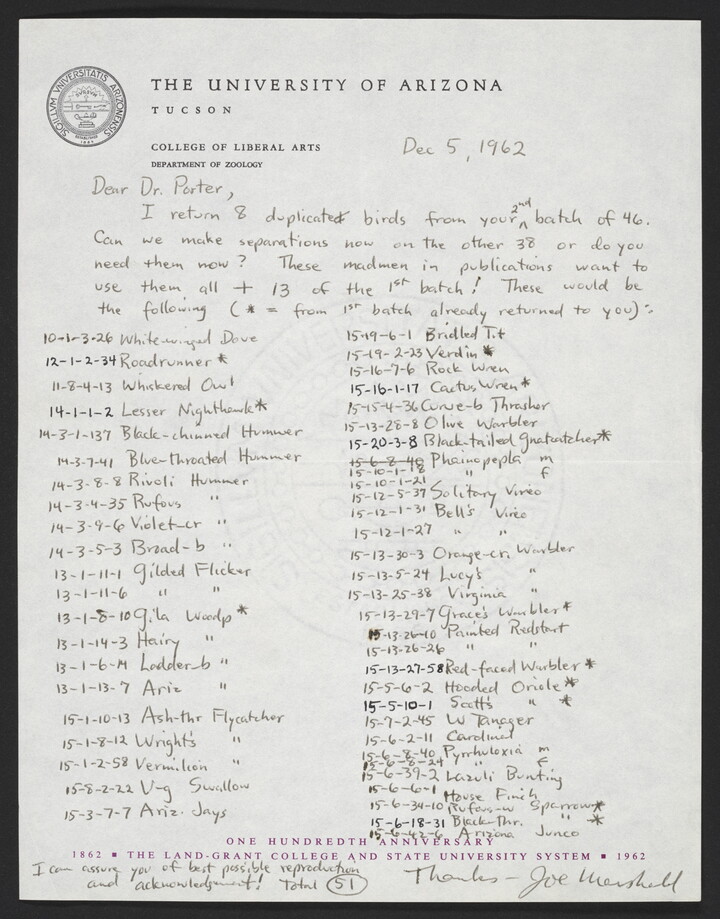 SIGILLVM VNIVERSITATIS ARIZONENSIS
THE UNIVERSITY OF ARIZONA
TUCSON
COLLEGE OF LIBERAL ARTS
DEPARTMENT OF ZOOLOGY
Dec 5, 1962
Dear Dr. Porter,
I return 8 duplicate birds from your 2nd batch of 46.
Can we make separations now on the other 38 or do you
need them now? These madmen in publications want to
use them all + 13 of the 1st batch! These would be
the following (* = from 1st batch already returned to you):
10-1-3-26 White-winged Dove
12-1-2-34 Roadrunner *
11-8-4-13 Whiskered Owl
14-1-1-2 Lesser Nighthawk *
14-3-1-137 Black-chinned Hummer
14-3-7-41 Blue-throated Hummer
14-3-8-8 Rivoli Hummer
14-3-4-35 Rufous "
14-3-9-6 Violet-cr "
14-3-5-3 Broad-b "
13-1-11-1 Gilded Flicker
13-1-11-6 " "
13-1-8-10 Gila Woodp *
13-1-14-3 Hairy "
13-1-6-14 Ladder-b "
13-1-13-7 Ariz "
15-1-10-13 Ash-thr Flycatcher
15-1-8-12 Wright's "
15-1-2-58 Vermilion "
15-8-2-22 V-g Swallow
15-3-7-7 Ariz. Jays
15-19-6-1 Bridled Tit
15-19-2-23 Verdin *
15-16-7-6 Rock Wren
15-16-1-17 Cactus Wren *
15-15-4-36 Curve-b Thrasher
15-13-28-8 Olive Warbler
15-20-3-8 Black-tailed Gnatcatcher *
15-6-8-40 Phainopepla m
15-10-1-18 " f
15-10-1-21
15-12-5-37 Solitary Vireo
15-12-1-31 Bell's Vireo
15-12-1-27 " "
15-13-30-3 Orange-cr. Warbler
15-13-5-24 Lucy's "
15-13-25-38 Virginia "
15-13-29-7 Grace's Warbler *
15-13-26-10 Painted Redstart
15-13-26-26 " "
15-13-27-58 Red-faced Warbler *
15-5-6-2 Hooded Oriole *
15-5-10-1 Scott's " *
15-7-2-45 W Tanager
15-6-2-11 Cardinal
15-6-8-40 Pyrrhuloxia m
15-6-8-24 " f
15-6-39-2 Lazuli Bunting
15-6-6-1 House Finch
15-6-34-10 Rufous-w Sparrow *
15-6-18-31 Black-thr. " *
15-6-42-6 Arizona Junco
ONE HUNDREDTH ANNIVERSARY
1862 ▪ THE LAND-GRANT COLLEGE AND STATE UNIVERSITY SYSTEM ▪ 1962
I can assure you of best possible reproduction
and acknowledgement! Total 51
Thanks – Joe Marshall